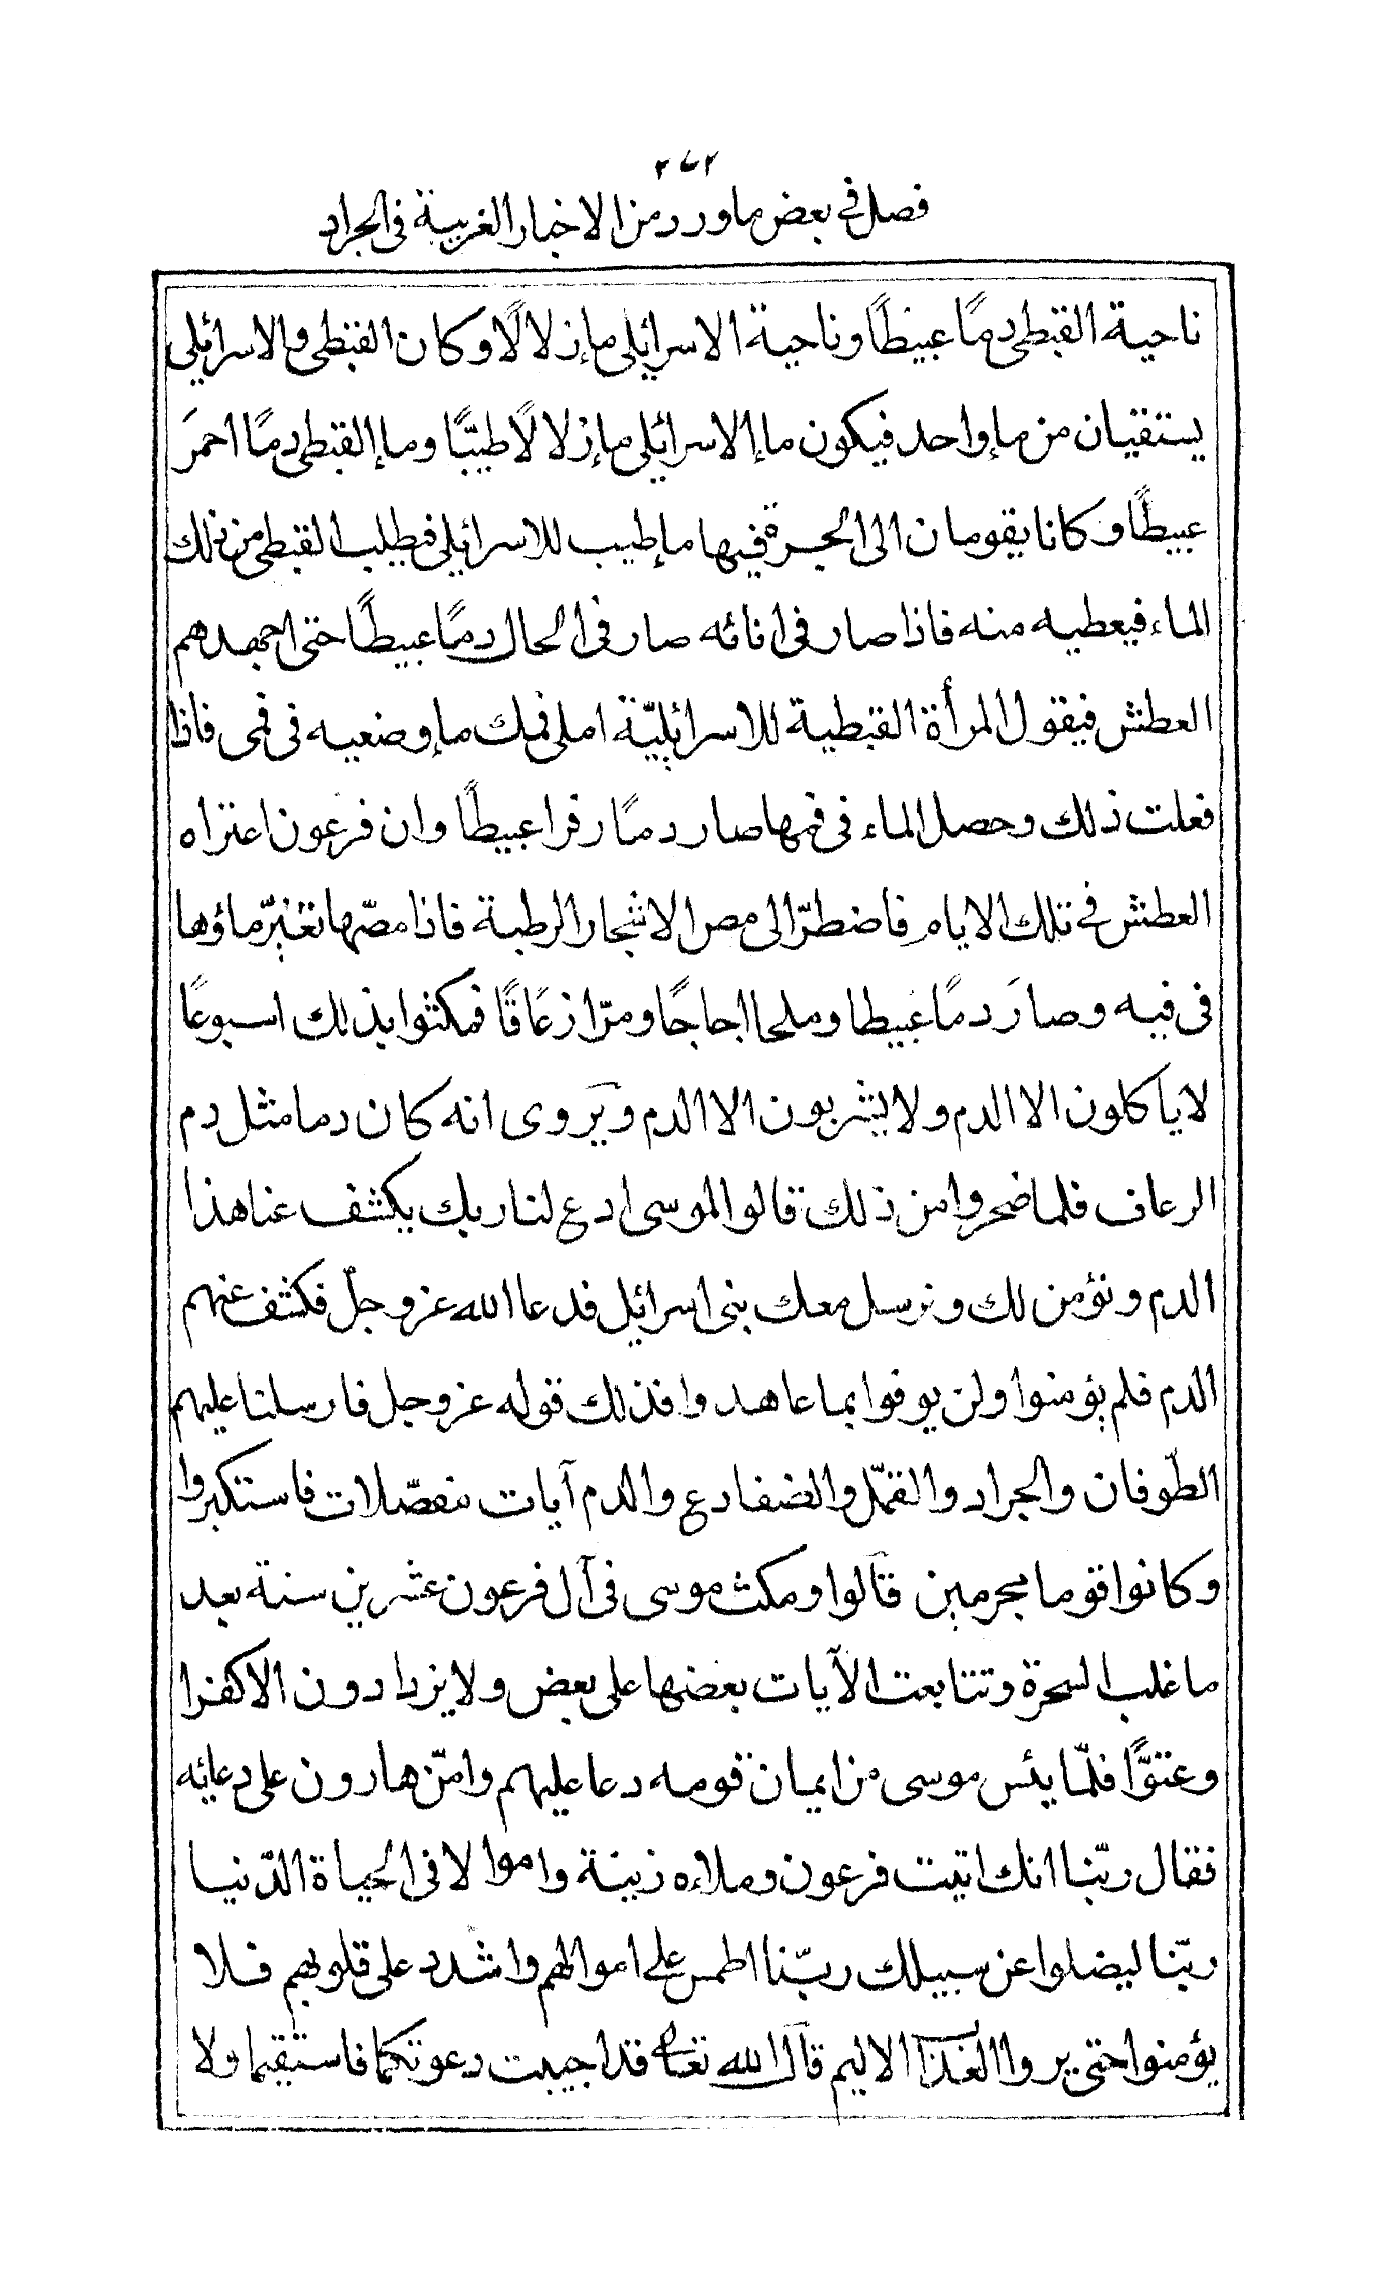 ٢٧٢
فصل في بعض ما ورد من الاخبار الغريبة في الجراد
ناحية القبطي دمًا عبيطًا وناحية الاسرائيلي ماء زلالًا وكان القبطي والاسرائيلي
يستقيان من ماء واحد فيكون ماء الاسرائيلي ماء زلالًا طيبًّا وماء القبطي دمًا احمرَ
عبيطًا وكانا يقومان الى الجرة فيها ماء طيب للاسرائيلي فيطلب القبطي من ذلك
الماء فيعطيه منه فاذا صار في انائه صار في الحال دمًا عبيطًا حتى اجهدهم
العطش فيقول المرأة القبطية للاسرائيليّة املي فمك ماء وضعيه في فمى فاذا
فعلت ذلك وحصل الماء في فمها صار دمًا رفرا عبيطًا وان فرعون اعتراه
العطش في تلك الايام فاضطرّ الى مص الاشجار الرطبة فاذا مصّها تغيّر ماؤها
في فيه وصارَ دمًا عبيطا وملحا اجاجًا ومرّا زعَاقًا فمكثوا بذلك اسبوعًا
لا يأكلون الا الدم ولا يشربون الا الدم ويروى انه كان دما مثل دم
الرعاف فلما ضجروا من ذلك قالوا لموسى ادع لنا ربك يكشف عنا هذا
الدم ونؤمن لك ونرسل معك بنى اسرائيل فدعا الله عز وجلّ فكشف عنهم
الدم فلم يؤمنوا ولن يوفوا بما عاهدوا فذلك قوله عز وجل فارسلنا عليهم
الطّوفان والجراد والقمّل والضفادع والدم آيات مفصّلات فاستكبروا
وكانوا قوما مجرمين قالوا ومكث موسى في آل فرعون عشرين سنة بعد
ما غلب السحرة وتتابعت الآيات بعضها على بعض ولا يزدادون الا كفرا
وعتوًّا فلمّا يئس موسى من ايمان قومه دعا عليهم وامّن هارون على دعائه
فقال ربّنا انك اتيت فرعون وملاءه زينة واموالا في الحياة الدّنيا
ربّنا ليضلوا عن سبيلك ربّنا اطمس على اموالهم واشدد على قلوبهم فلا
يؤمنوا حتى يروا العذا الاليم قال الله تعالى قد اجيبت دعوتكما فاستقيما ولا